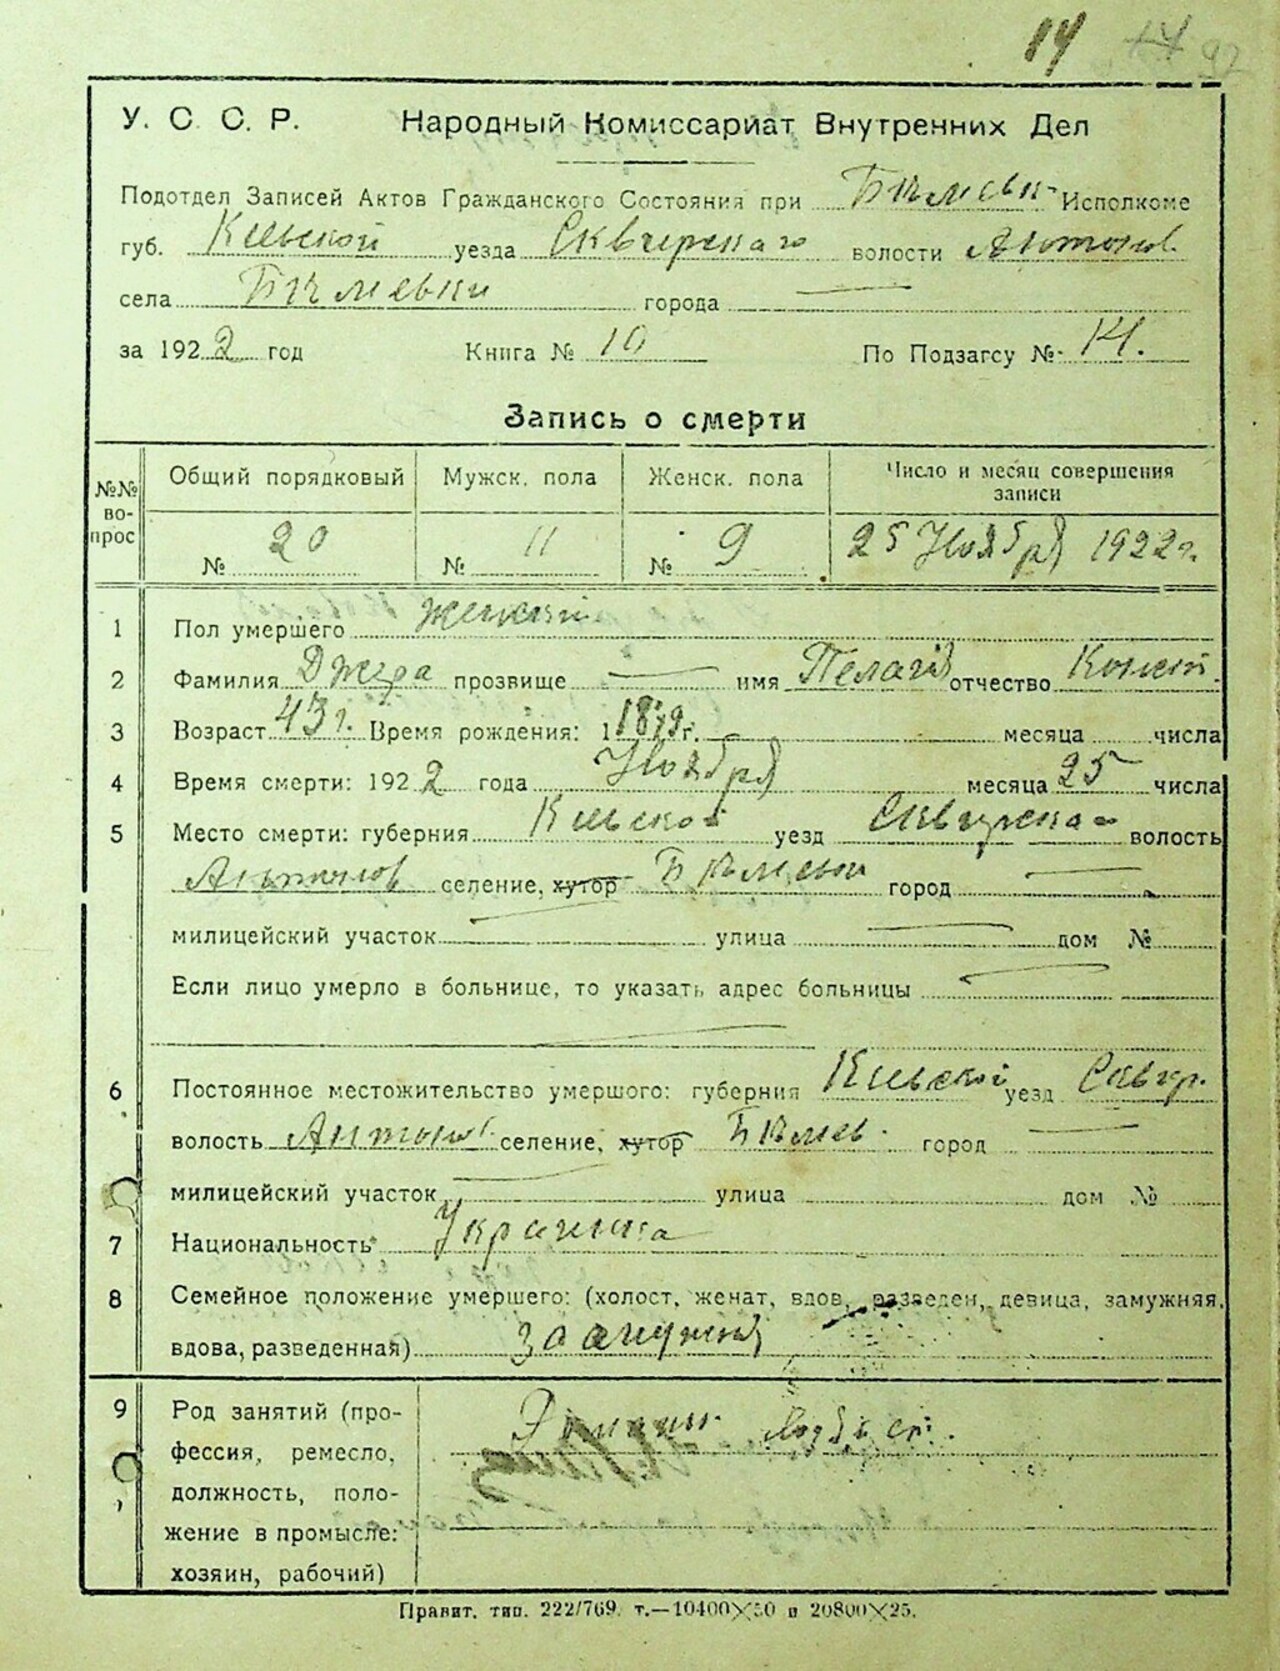 14 14 92
У. С. С. Р. Народный Комиссариат Внутренних Дел
Подотдел Записей Актов Гражданского Состояния при Исполкоме
губ. Киевской уезда Сквирскаго волости Антонов
села города
за 1922 год Книга № 10 По Подзагсу № 14.
Запись о смерти
№№ вопрос Общий порядковый Мужск. пола Женск. пола Число и месяц совершения записи
№ 20 № 11 № 9 25 Ноября 1922 г.
1 Пол умершего женский
2 Фамилия Джура прозвище — имя Пелагія отчество Конст.
3 Возраст 43 г. Время рождения: 1 1879 г. месяца числа
4 Время смерти: 1922 года Ноября месяца 25 числа
5 Место смерти: губерния Киевской уезд Сквирскаго волость
Антонов селение, хутор город —
милицейский участок — улица — дом №
Если лицо умерло в больнице, то указать адрес больницы —
6 Постоянное местожительство умершого: губерния Киевской уезд Сквир.
волость Антонов селение, хутор город —
милицейский участок — улица дом №
7 Национальность Украинка
8 Семейное положение умершего: (холост, женат, вдов, разведен, девица, замужняя,
вдова, разведенная) замужняя
9 Род занятий (про-
фессия, ремесло,
должность, поло-
жение в промысле:
хозяин, рабочий)
Правит. тип. 222/769. т.—10400×50 и 20800×25.